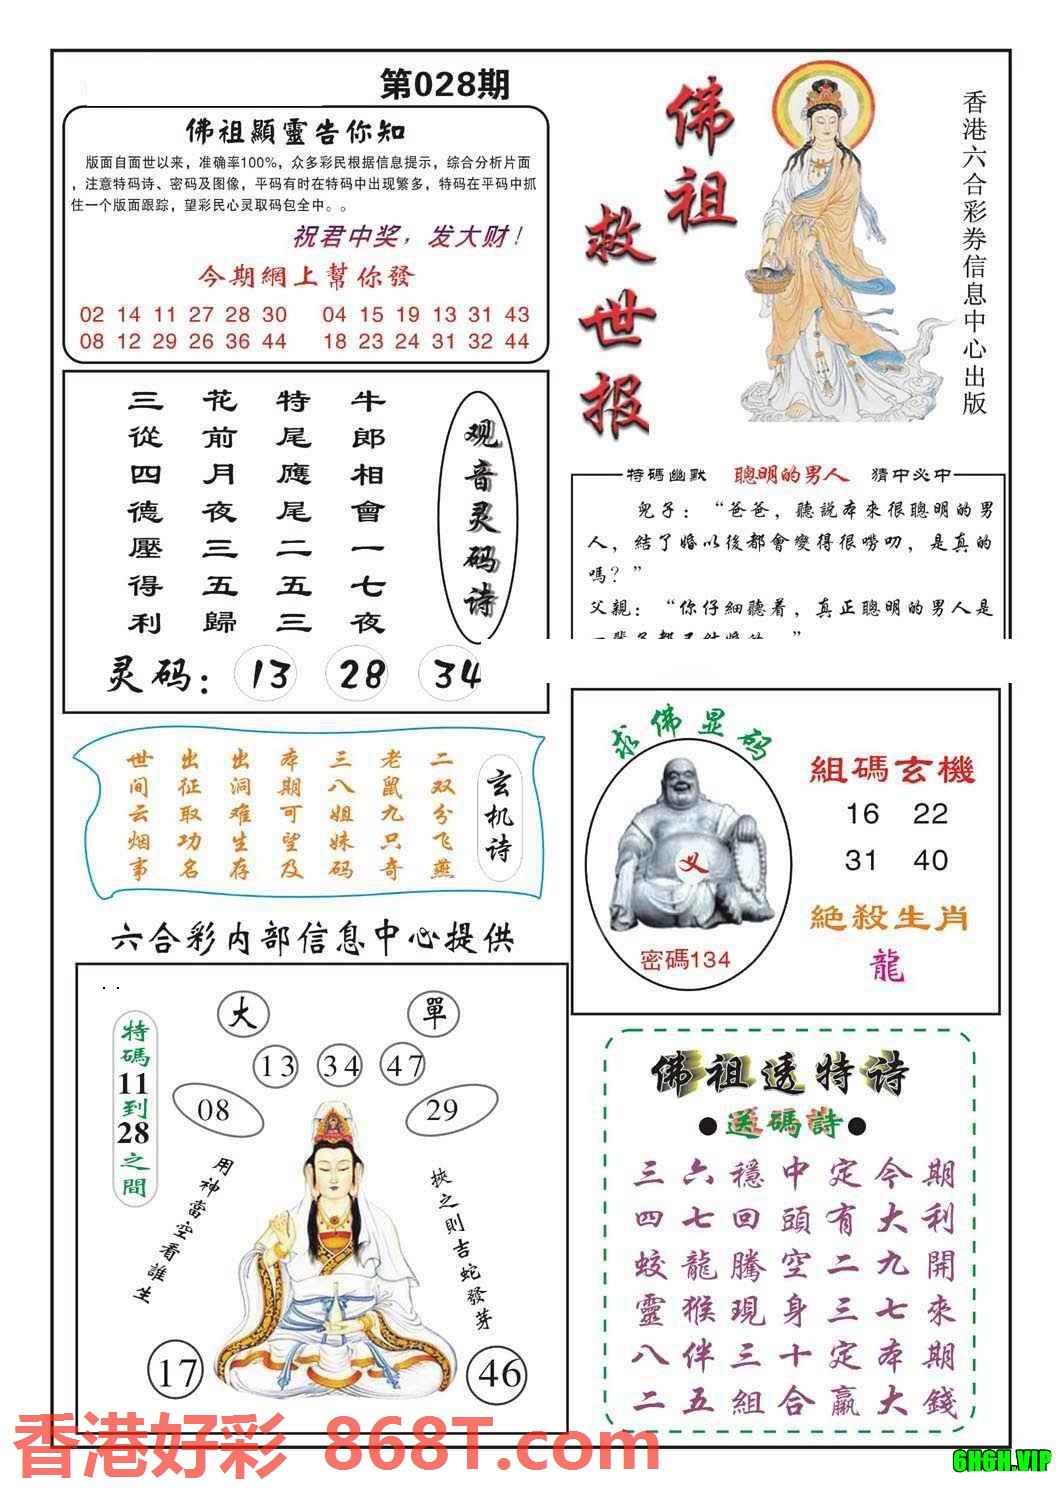 第028期
佛祖顯靈告你知
版面自面世以来，准确率100%，众多彩民根据信息提示，综合分析片面
，注意特码诗、密码及图像，平码有时在特码中出现繁多，特码在平码中抓
住一个版面跟踪，望彩民心灵取码包全中。。
祝君中奖，发大财！
今期網上幫你發
02 14 11 27 28 30 04 15 19 13 31 43
08 12 29 26 36 44 18 23 24 31 32 44
佛祖
救世报
香港六合彩券信息中心出版
观音灵码诗
牛郎相會一七夜
特尾應尾二五三
花前月夜三五歸
三從四德壓得利
灵码：13 28 34
特碼幽默 聰明的男人 猜中必中
兒子：“爸爸，聽説本來很聰明的男
人，結了婚以後都會變得很嘮叨，是真的
嗎？”
父親：“你仔細聽着，真正聰明的男人是
玄机诗
二双分飞燕
老鼠九只奇
三八姐妹码
本期可望及
出洞难生存
出征取功名
世间云烟事
求佛显码
密碼134
組碼玄機
16 22
31 40
絶殺生肖
龍
六合彩内部信息中心提供
特碼11到28之間
大 單
13 34 47
08 29
用神當空看誰生
挾之則吉蛇發芽
17 46
佛祖透特诗
●送碼詩●
三六穩中定今期
四七回頭有大利
蛟龍騰空二九開
靈猴現身三七來
八伴三十定本期
二五組合贏大錢
香港好彩 868T.com
6H6H.VIP